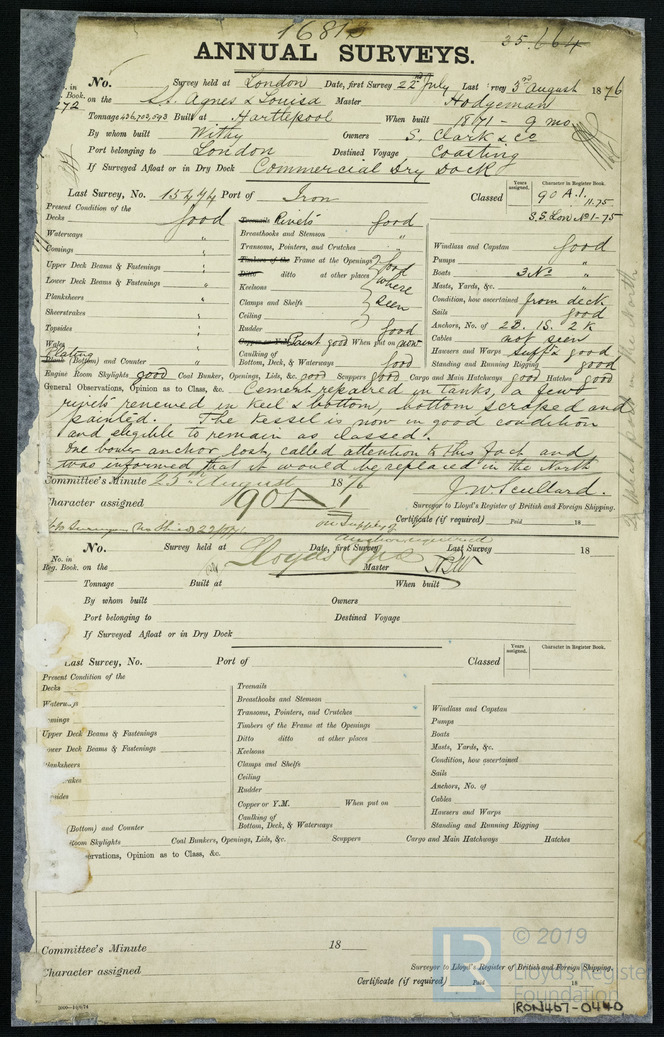 16812
25.664
ANNUAL SURVEYS.
No. Survey held at London Date, first Survey 22nd July Last Survey 3rd August 1876
in
Book. on the S.s. Agnes & Louisa Master Hodgeman
272
Tonnage 436,702,593 Built at Hartlepool When built 1871 - 9 mo
By whom built Withy Owners S. Clark & Co
Port belonging to London Destined Voyage Coasting
If Surveyed Afloat or in Dry Dock Commercial Dry Dock
Last Survey, No. 15474 Port of Iron Classed
Years assigned. Character in Register Book.
90 A.1. 11.75
S.S. Lon No 1-75
Present Condition of the
Decks good
Waterways "
Comings "
Upper Deck Beams & Fastenings "
Lower Deck Beams & Fastenings "
Planksheers "
Sheerstrakes "
Topsides "
Wales "
Plating
Plank (Bottom) and Counter "
Treenails Rivets good
Breasthooks and Stemson "
Transoms, Pointers, and Crutches "
Timbers of the Frame at the Openings good
Ditto ditto at other places where
Keelsons
Clamps and Shelfs seen
Ceiling
Rudder good
Copper or Y.M. Paint good When put on now
Caulking of
Bottom, Deck, & Waterways good
Windlass and Capstan good
Pumps "
Boats 3 No. "
Masts, Yards, &c. "
Condition, how ascertained from deck
Sails good
Anchors, No. of 2B. 1S. 2K
Cables not seen
Hawsers and Warps suff't & good
Standing and Running Rigging good
Engine Room Skylights good Coal Bunkers, Openings, Lids, &c. good Scuppers good Cargo and Main Hatchways good Hatches good
General Observations, Opinion as to Class, &c. Cement repaired in tanks, a few
rivets renewed in keel & bottom, bottom scraped and
painted. The Vessel is now in good condition
and eligible to remain as classed.
One bower anchor lost, called attention to this fact and
was informed that it would be replaced in the North
Committee's Minute 25th August 1876
Character assigned 90 A 1
J. W. Scullard.
Surveyor to Lloyd's Register of British and Foreign Shipping.
Certificate (if required) Paid 18
on supply of
Anchor required
No. Survey held at Date, first Survey Last Survey 18
No. in
Reg. Book. on the Lloyds Master
Tonnage Built at When built
By whom built Owners
Port belonging to Destined Voyage
If Surveyed Afloat or in Dry Dock
Last Survey, No. Port of Classed
Years assigned. Character in Register Book.
Present Condition of the
Decks
Waterways
omings
Upper Deck Beams & Fastenings
ower Deck Beams & Fastenings
lanksheers
rakes
sides
(Bottom) and Counter
Treenails
Breasthooks and Stemson
Transoms, Pointers, and Crutches
Timbers of the Frame at the Openings
Ditto ditto at other places
Keelsons
Clamps and Shelfs
Ceiling
Rudder
Copper or Y.M. When put on
Caulking of
Bottom, Deck, & Waterways
Windlass and Capstan
Pumps
Boats
Masts, Yards, &c.
Condition, how ascertained
Sails
Anchors, No. of
Cables
Hawsers and Warps
Standing and Running Rigging
Room Skylights Coal Bunkers, Openings, Lids, &c. Scuppers Cargo and Main Hatchways Hatches
ervations, Opinion as to Class, &c.
Committee's Minute 18
Character assigned
Surveyor to Lloyd's Register of British and Foreign Shipping.
Certificate (if required) Paid 18
LR
© 2019
Lloyd's Register
Foundation
IRON467-0440